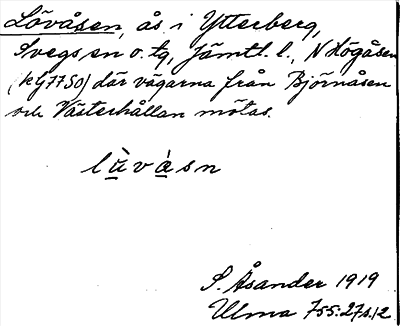 Lövåsen, ås i Ytterberg,
Svegs sn o. tg, Jämtl. l., N Högåsen
(kG7750) där vägarna från Björnåsen
och Västerhållan mötas.
lùvàsn
S. Åsander 1919
Ulma 755:27 s.12